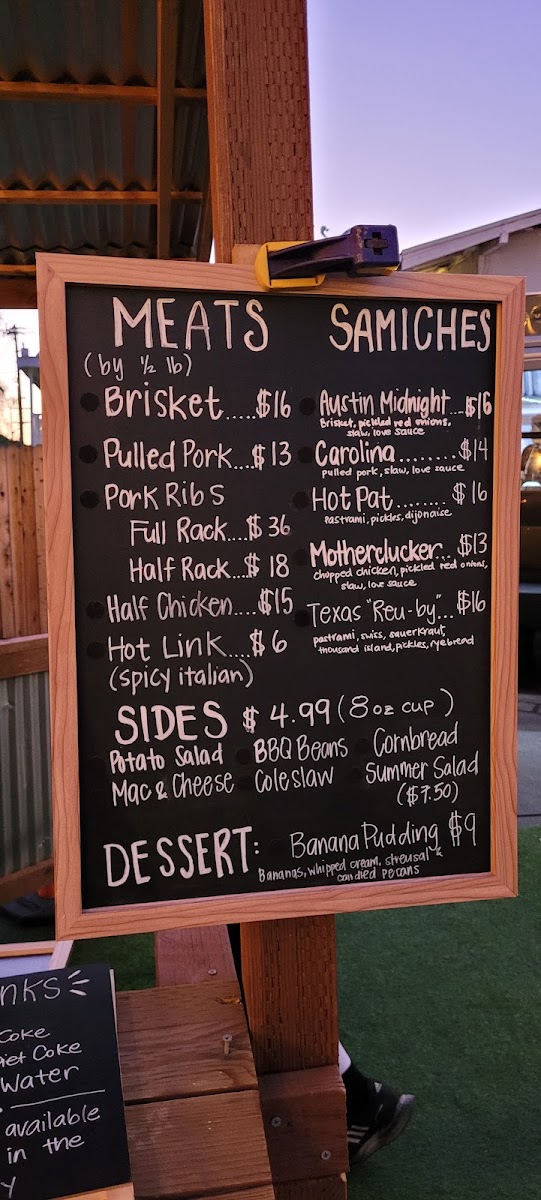 MEATS
(by ½ lb)
Brisket.....$16
Pulled Pork....$13
Pork Ribs
Full Rack....$36
Half Rack...$18
Half Chicken....$15
Hot Link....$6
(spicy italian)
SAMICHES
Austin Midnight...$16
Brisket, pickled red onions,
slaw, love sauce
Carolina........$14
pulled pork, slaw, love sauce
Hot Pat.......$16
Pastrami, pickles, dijonaise
Motherclucker...$13
chopped chicken, pickled red onions,
slaw, love sauce
Texas "Reu-by"...$16
pastrami, swiss, sauerkraut,
thousand island, pickles, rye bread
SIDES $4.99 (8oz cup)
Potato Salad BBQ Beans Cornbread
Mac & Cheese Coleslaw Summer Salad
($7.50)
DESSERT: Banana Pudding $9
Bananas, whipped cream, streusal &
candied pecans
nks
Coke
iet Coke
Water
available
in the
y